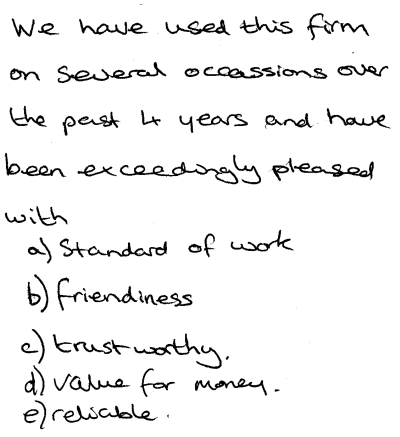 We have used this firm
on several occassions over
the past 4 years and have
been exceedingly pleased
with
a) Standard of work
b) friendiness
c) trustworthy.
d) value for money.
e) reliable.